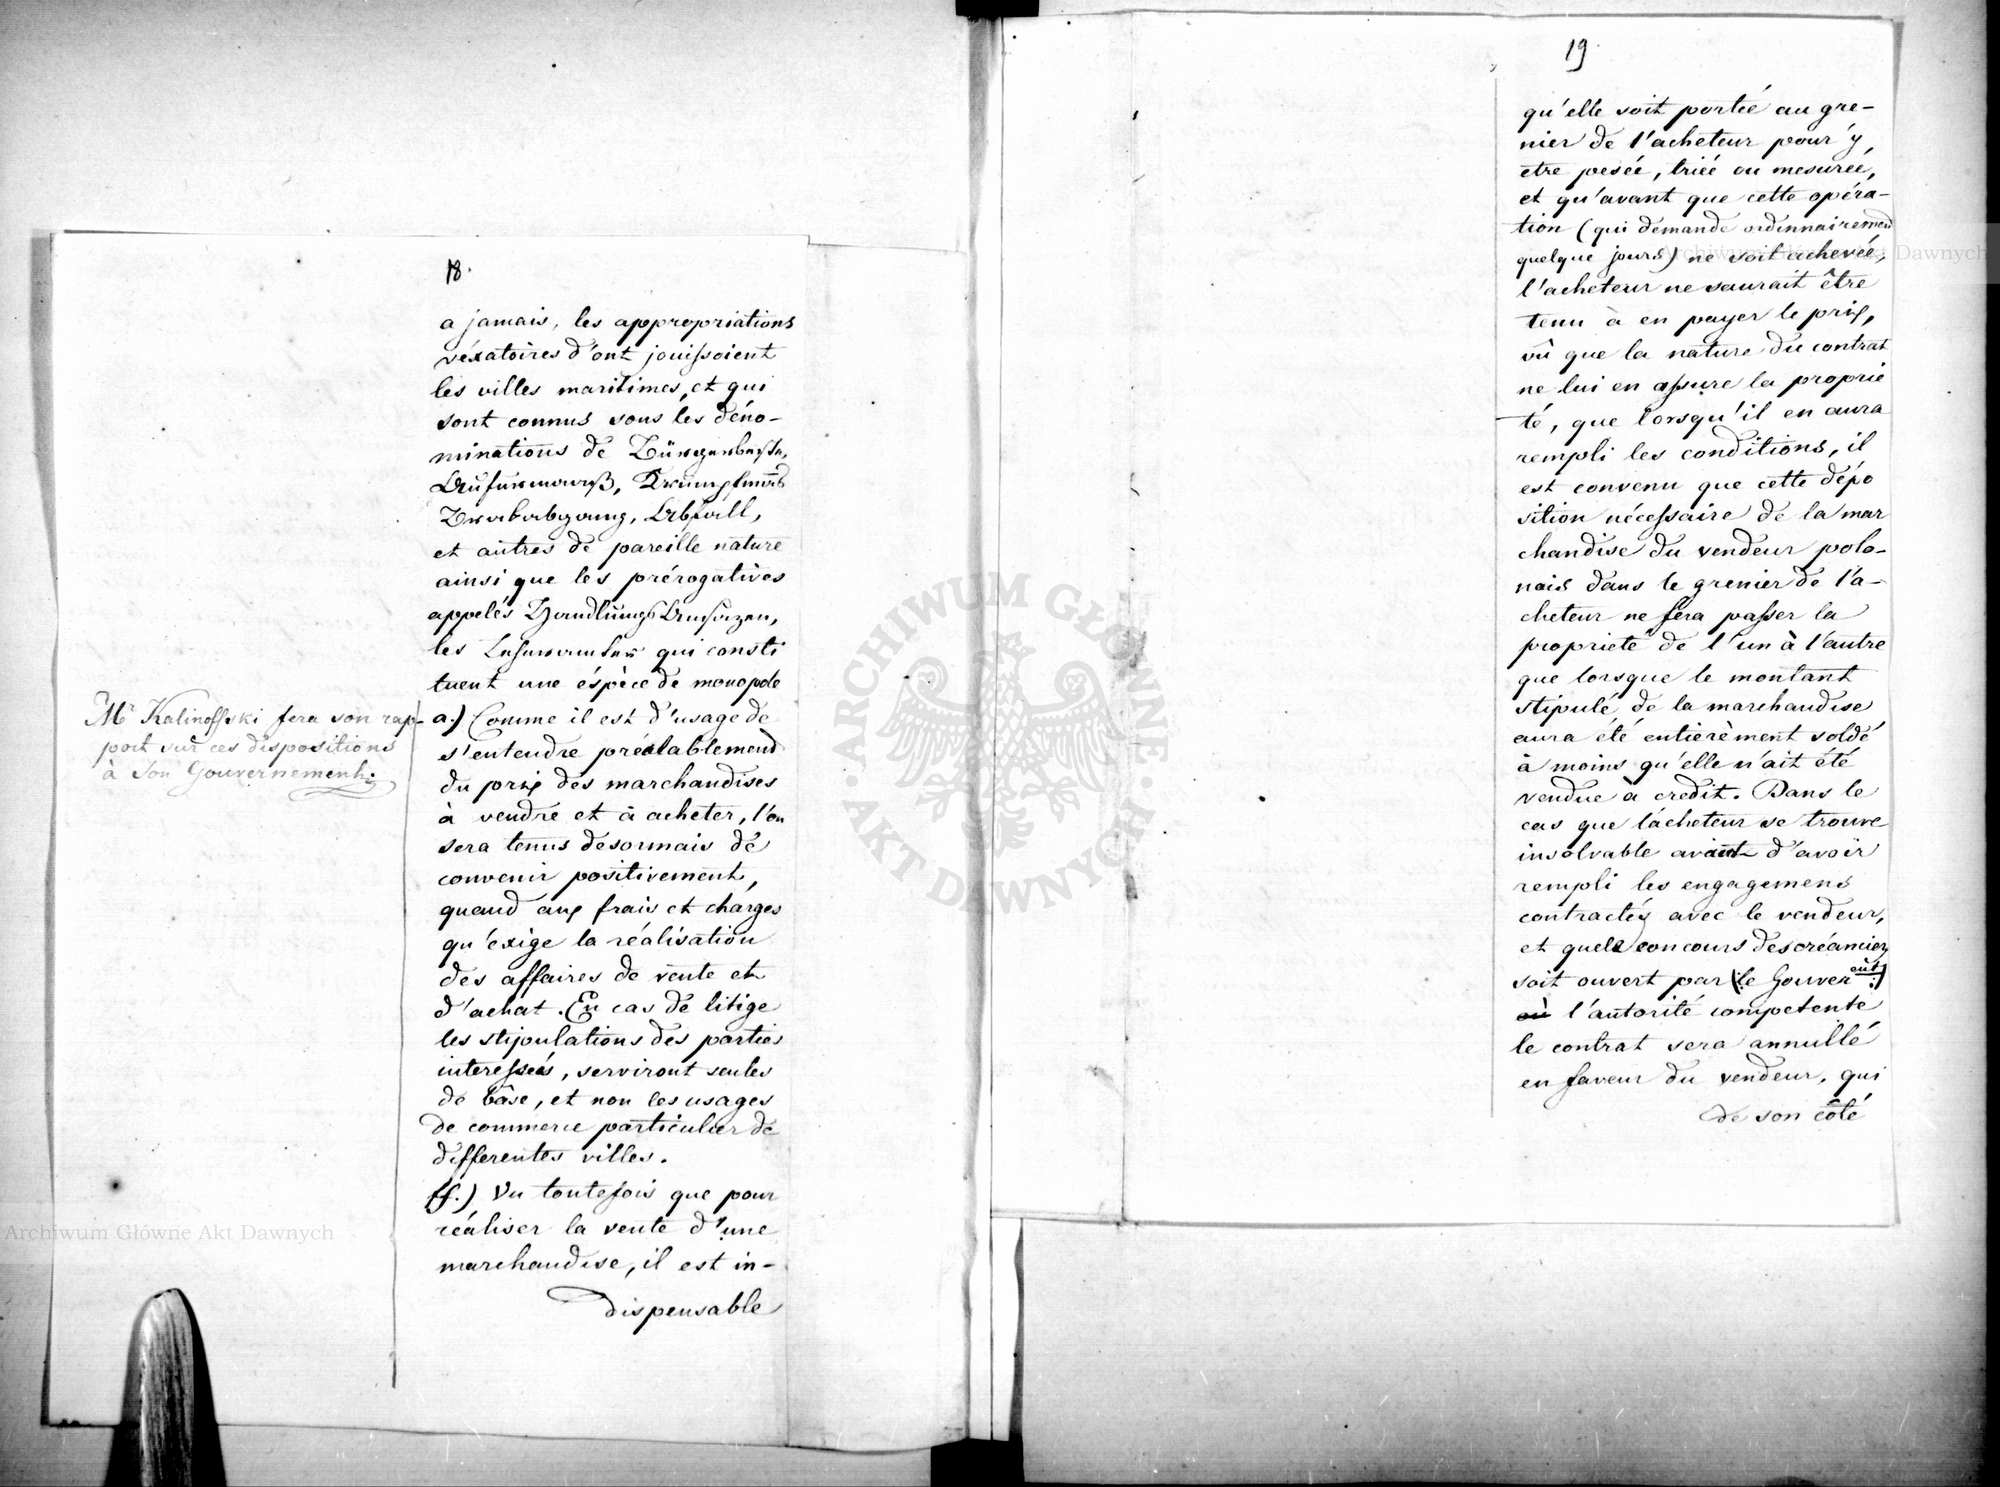 18.
a jamais, les appropriations
véxatoires d'ont jouissoient
les villes maritimes, et qui
sont connus sous les déno-
minations de
Zwababgang, Abfall,
et autres de pareille nature
ainsi que les prérogatives
appelés Handlungs
les qui consti
tuent une éspèce de monopole
Mr Kalinoffski fera son rap-
port sur ces dispositions
à son Gouvernement.
a.) Comme il est d'usage de
s'entendre préalablement
du prix des marchandises
à vendre et à acheter, l'on
sera tenus desormais de
convenir positivement,
quand aux frais et charges
qu'exige la réalisation
des affaires de vente et
d'achat. En cas de litige
les stipulations des parties
interessées, serviront seules
de bâse, et non les usages
de commerce particulier de
differentes villes.
ff.) Vu toutefois que pour
réaliser la vente d'une
marchandise, il est in-
dispensable
19.
qu'elle soit portée au gre-
nier de l'acheteur pour y
etre pesée, triée ou mesurée,
et qu'avant que cette opéra-
tion (qui demande ordinnairement
quelque jours) ne soit achevée,
l'acheteur ne saurait être
tenu à en payer le prix,
vû que la nature du contrat
ne lui en assure la proprie
té, que lorsqu'il en aura
rempli les conditions, il
est convenu que cette dépo
sition nécessaire de la mar
chandise du vendeur polo-
nais dans le grenier de l'a-
cheteur ne fera passer la
proprieté de l'un à l'autre
que lorsque le montant
stipulé de la marchandise
aura été entièrèment soldé
à moins qu'elle n'ait été
vendue à credit. Dans le
cas que l'acheteur se trouve
insolvable avant d'avoir
rempli les engagemens
contractés avec le vendeur,
et quele concours des créanciers
soit ouvert par (le Gouver ent)
où l'autorité competente
le contrat sera annullé
en faveur du vendeur, qui
de son côté
Archiwum Główne Akt Dawnych
Archiwum Główne Akt Dawnych
ARCHIWUM GŁÓWNE · AKT DAWNYCH ·